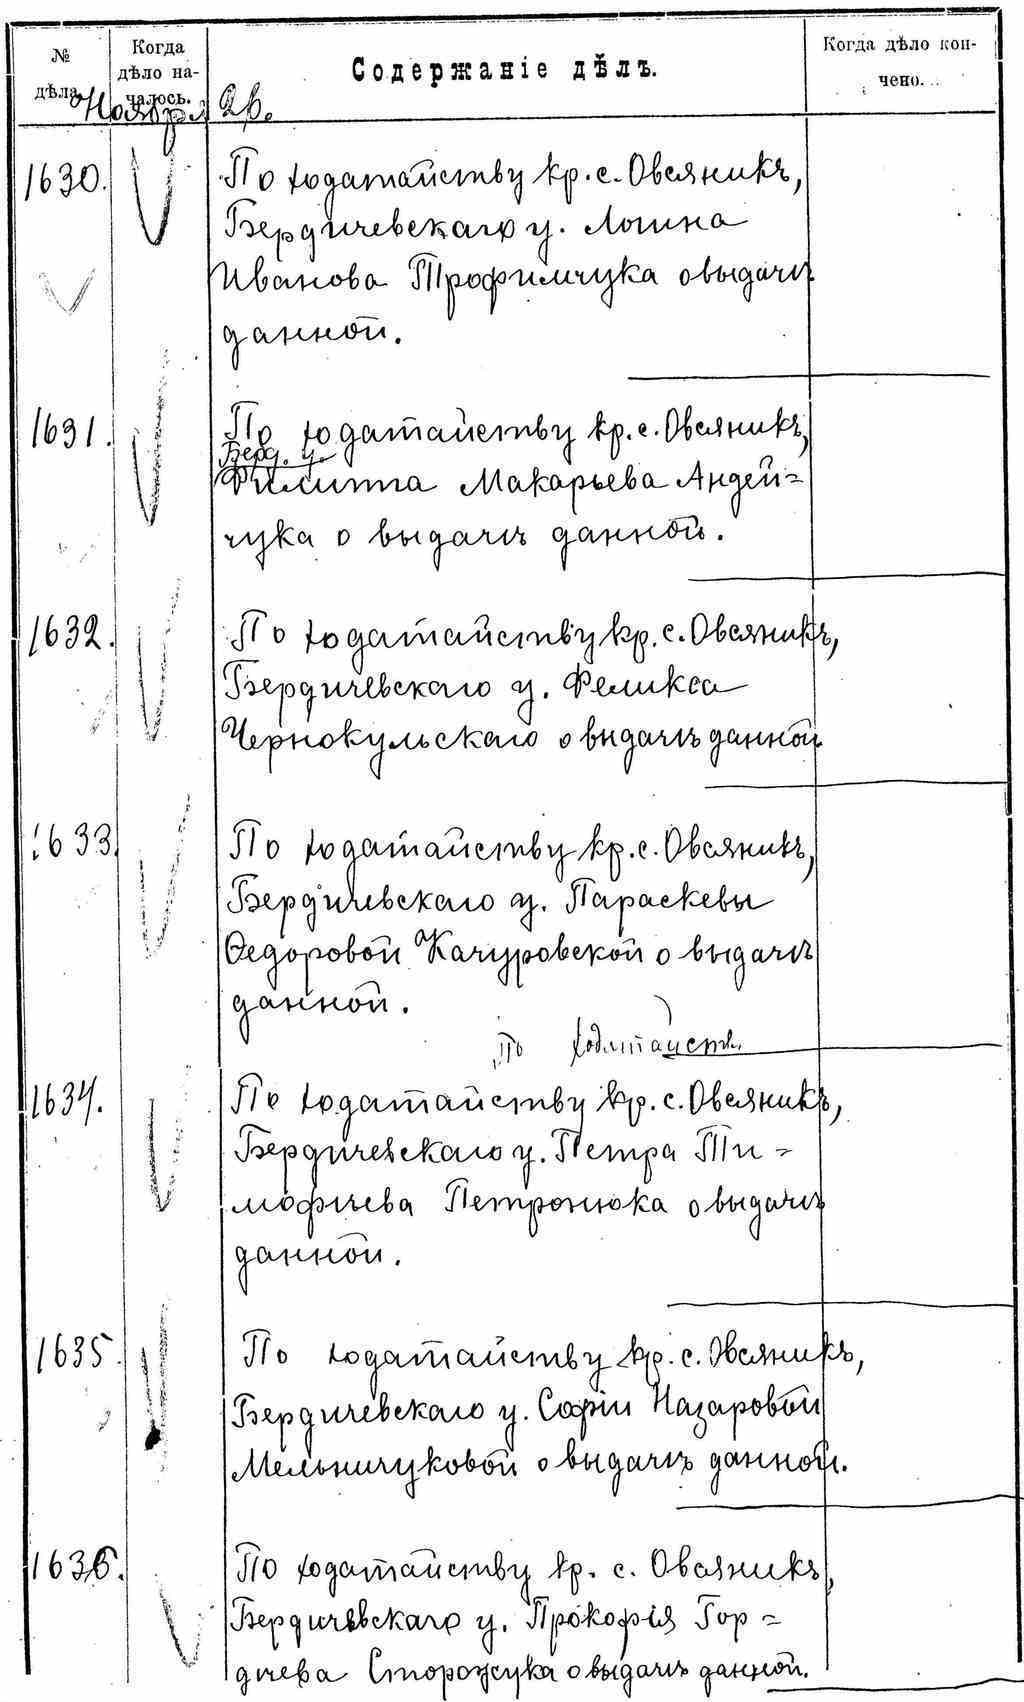 № дѣла
Когда дѣло началось.
Содержаніе дѣлъ.
Когда дѣло кончено.
Ноября 26.
1630.
По ходатайству кр. с. Овсяникъ,
Бердичевскаго у. Логина
Иванова Трофимчука о выдачѣ
данной.
1631.
По ходатайству кр. с. Овсяникъ,
Берд. у.
Филиппа Макарьева Андей=
чука о выдачѣ данной.
1632.
По ходатайству кр. с. Овсяникъ,
Бердичевскаго у. Феликса
Чернокульскаго о выдачѣ данной
1633.
По ходатайству кр. с. Овсяникъ,
Бердичевскаго у. Параскевы
Ѳедоровой Качуровской о выдачѣ
данной.
По ходатайств.
1634.
По ходатайству кр. с. Овсяникъ,
Бердичевскаго у. Петра Ти=
мофѣева Петронюка о выдачѣ
данной.
1635.
По ходатайству кр. с. Овсяникъ,
Бердичевскаго у. Софіи Назаровой
Мельничуковой о выдачѣ данной.
1636.
По ходатайству кр. с. Овсяникъ,
Бердичевскаго у. Прокофія Гор=
дѣева Сторожука о выдачѣ данной.